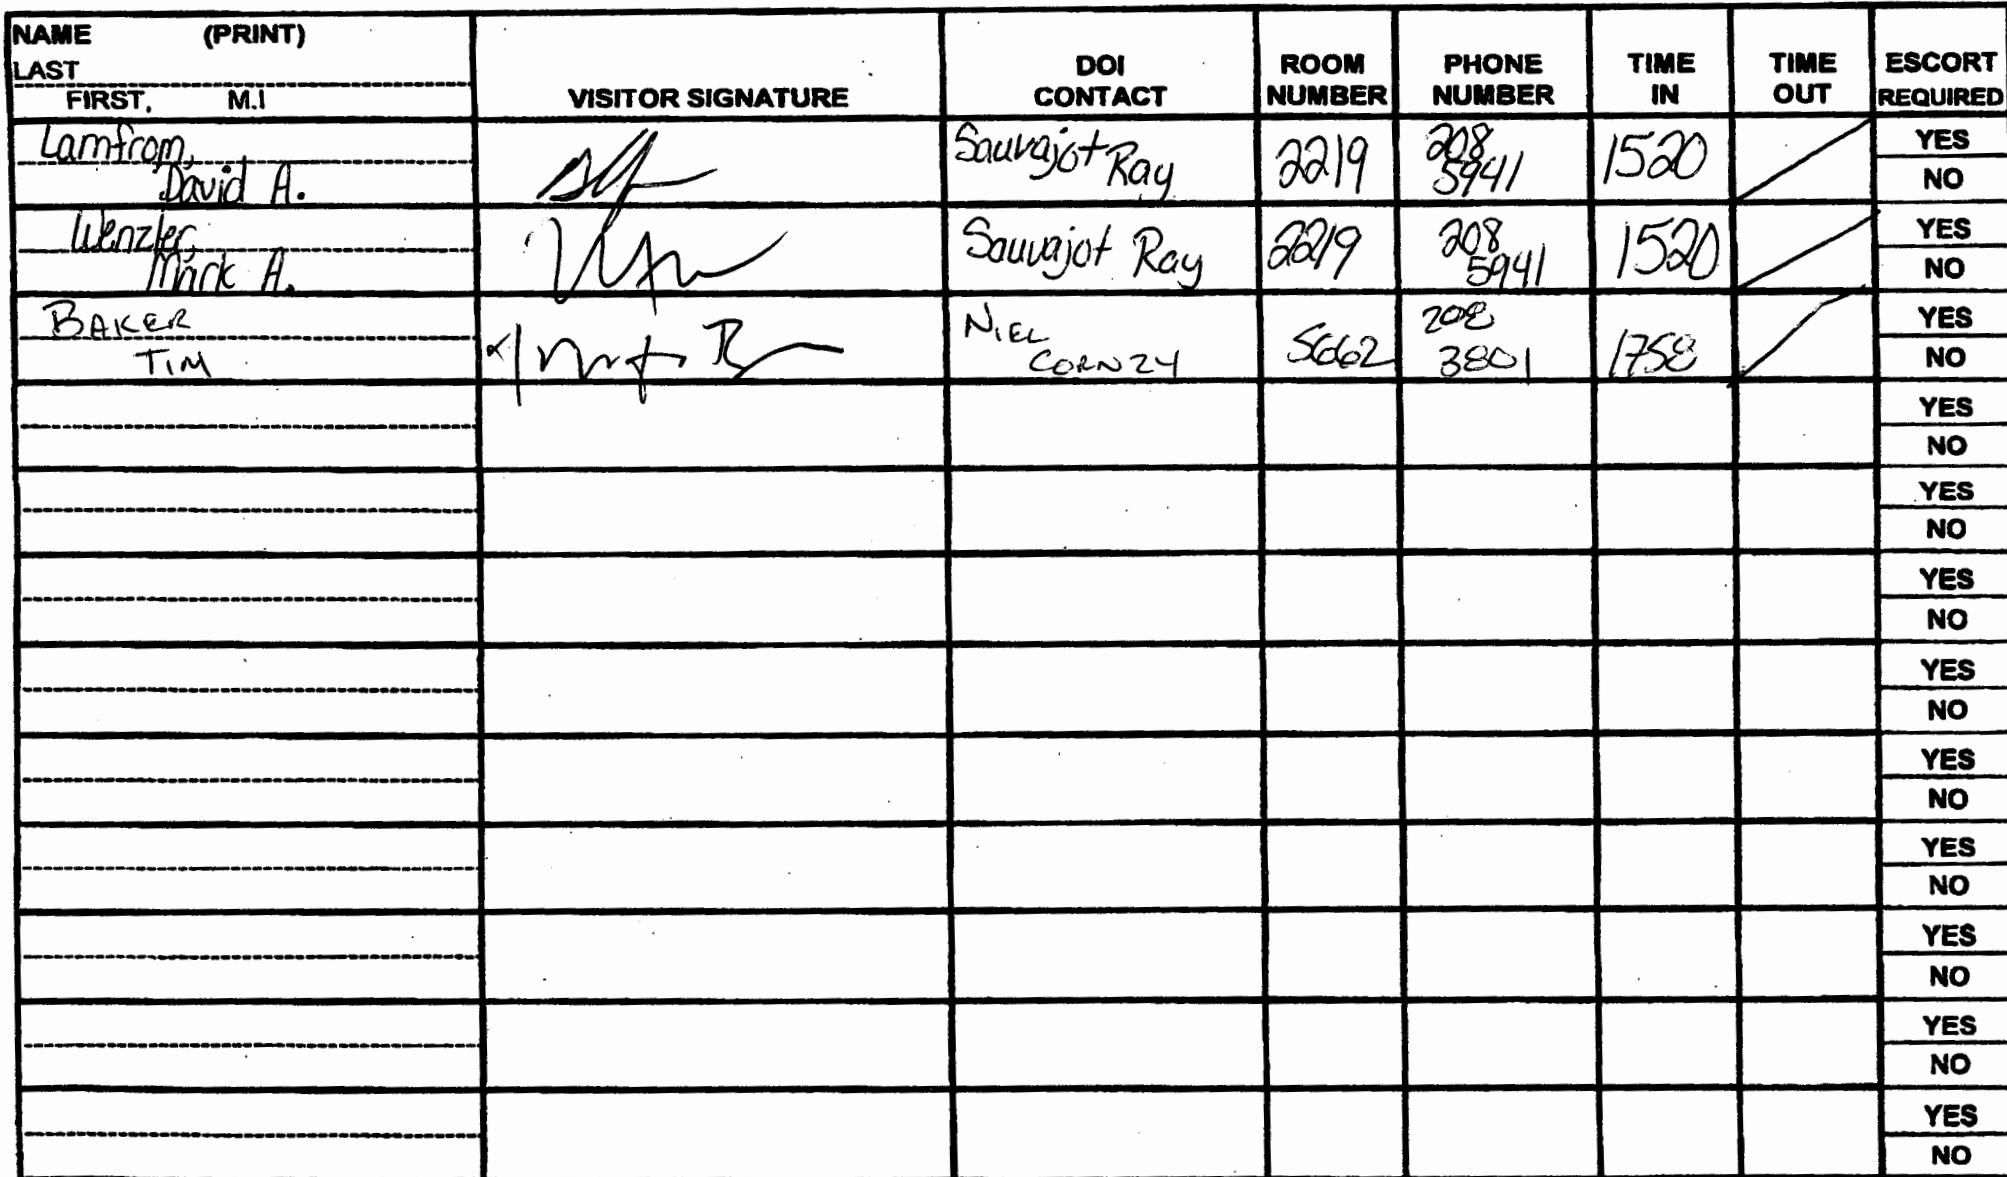 NAME (PRINT)
LAST
FIRST, M.I
VISITOR SIGNATURE
DOI
CONTACT
ROOM
NUMBER
PHONE
NUMBER
TIME
IN
TIME
OUT
ESCORT
REQUIRED
Lamfrom,
David A.
Sauvajot Ray
2219
208
5941
1520
YES
NO
Wenzler,
Mark A.
Sauvajot Ray
2219
208
5941
1520
YES
NO
BAKER
TIM
NIEL
5662
208
3801
1758
YES
NO
YES
NO
YES
NO
YES
NO
YES
NO
YES
NO
YES
NO
YES
NO
YES
NO
YES
NO